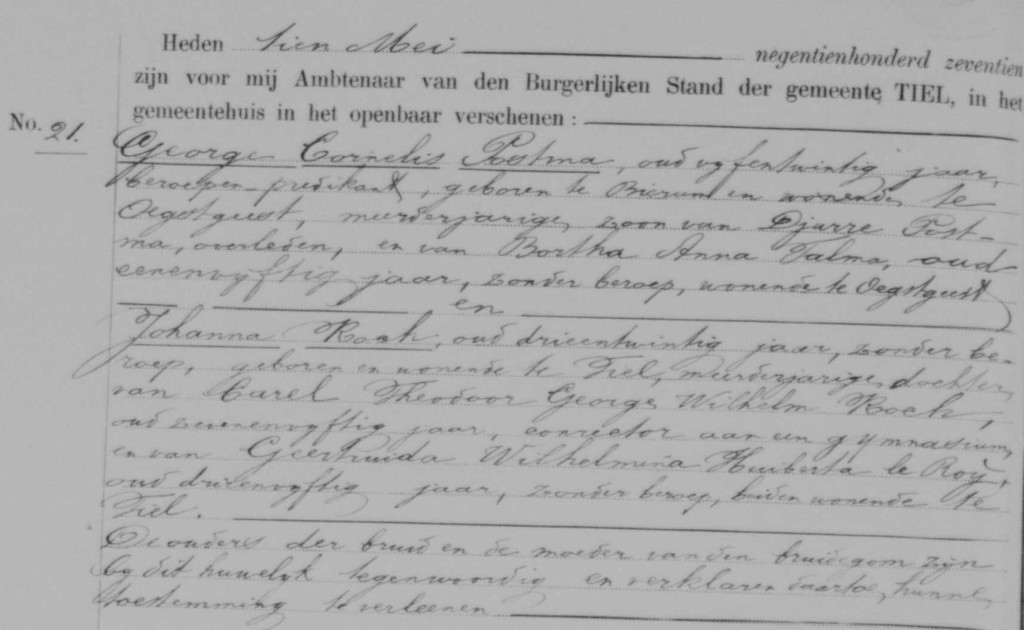 Heden tien Mei negentienhonderd zeventien
zijn voor mij Ambtenaar van den Burgerlijken Stand der gemeente TIEL, in het
gemeentehuis in het openbaar verschenen :
No. 21.
George Cornelis Postma, oud vyfentwintig jaar,
beroepen-predikant, geboren te Bierum en wonende te
Oegstgeest, meerderjarige zoon van Djurre Post-
ma, overleden, en van Bertha Anna Talma, oud
eenenvyftig jaar, zonder beroep, wonende te Oegstgeest
en
Johanna Rock, oud drieentwintig jaar, zonder be-
roep, geboren en wonende te Tiel, meerderjarige dochter
van Carel Theodoor George Wilhelm Rock,
oud zevenenvyftig jaar, conrector aan een gymnasium,
en van Geertruida Wilhelmina Huiberta le Roÿ,
oud drieenvyftig jaar, zonder beroep, beiden wonende te
Tiel.
De ouders der bruid en de moeder van den bruidegom zijn
by dit huwelyk tegenwoordig en verklaren daartoe hunne
toestemming te verleenen